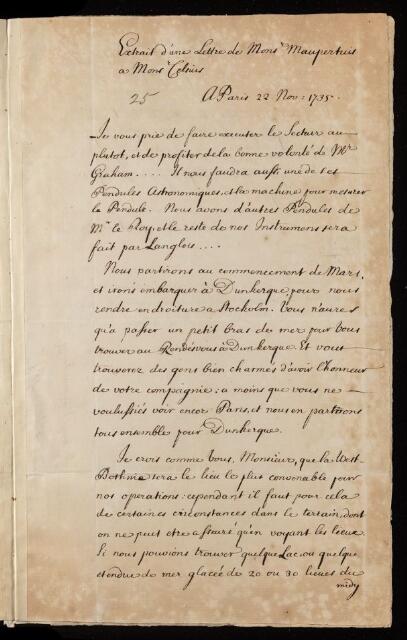 Extrait d'une Lettre de Monsr. Maupertuis
a Monsr. Celsius
25
A Paris 22 Nov: 1735.
Je vous prie de faire executer le Secteur au
plutot, et de profiter de la bonne volonté de Mr
Graham.... Il nous faudra aussi une de ses
Pendules Astronomiques, et la machine pour mesurer
la Pendule. Nous avons d'autres Pendules de
Mr. le Roy, et le reste de nos Instrumens sera
fait par Langlois....
Nous partirons au commencement de Mars,
et irons embarquer à Dunkerque pour nous
rendre en droiture a Stockolm. Vous n'aures
qu'a passer un petit bras de mer pour vous
trouver au Rendésvous à Dunkerque. Et vous
trouverez des gens bien charmés d'avoir l'honneur
de votre compagnie: a moins que vous ne
voulussiés voir encor Paris, et nous en partirons
tous ensemble pour Dunkerque.
Je crois comme vous, Monsieur, que la West-
Bothnie sera le lieu le plus convenable pour
nos operations: cependant il faut pour cela
de certaines circonstances dans le terrain, dont
on ne peut etre assuré qu'en voyant les lieux.
Si nous pouvions trouver quelque Lac, ou quelque
etendue de mer glacée de 20 ou 30 lieues du
midy